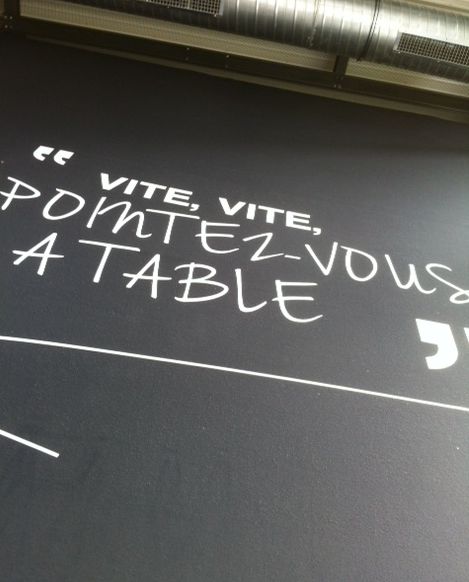 “ VITE, VITE,
POINTEZ-VOUS
A TABLE ”